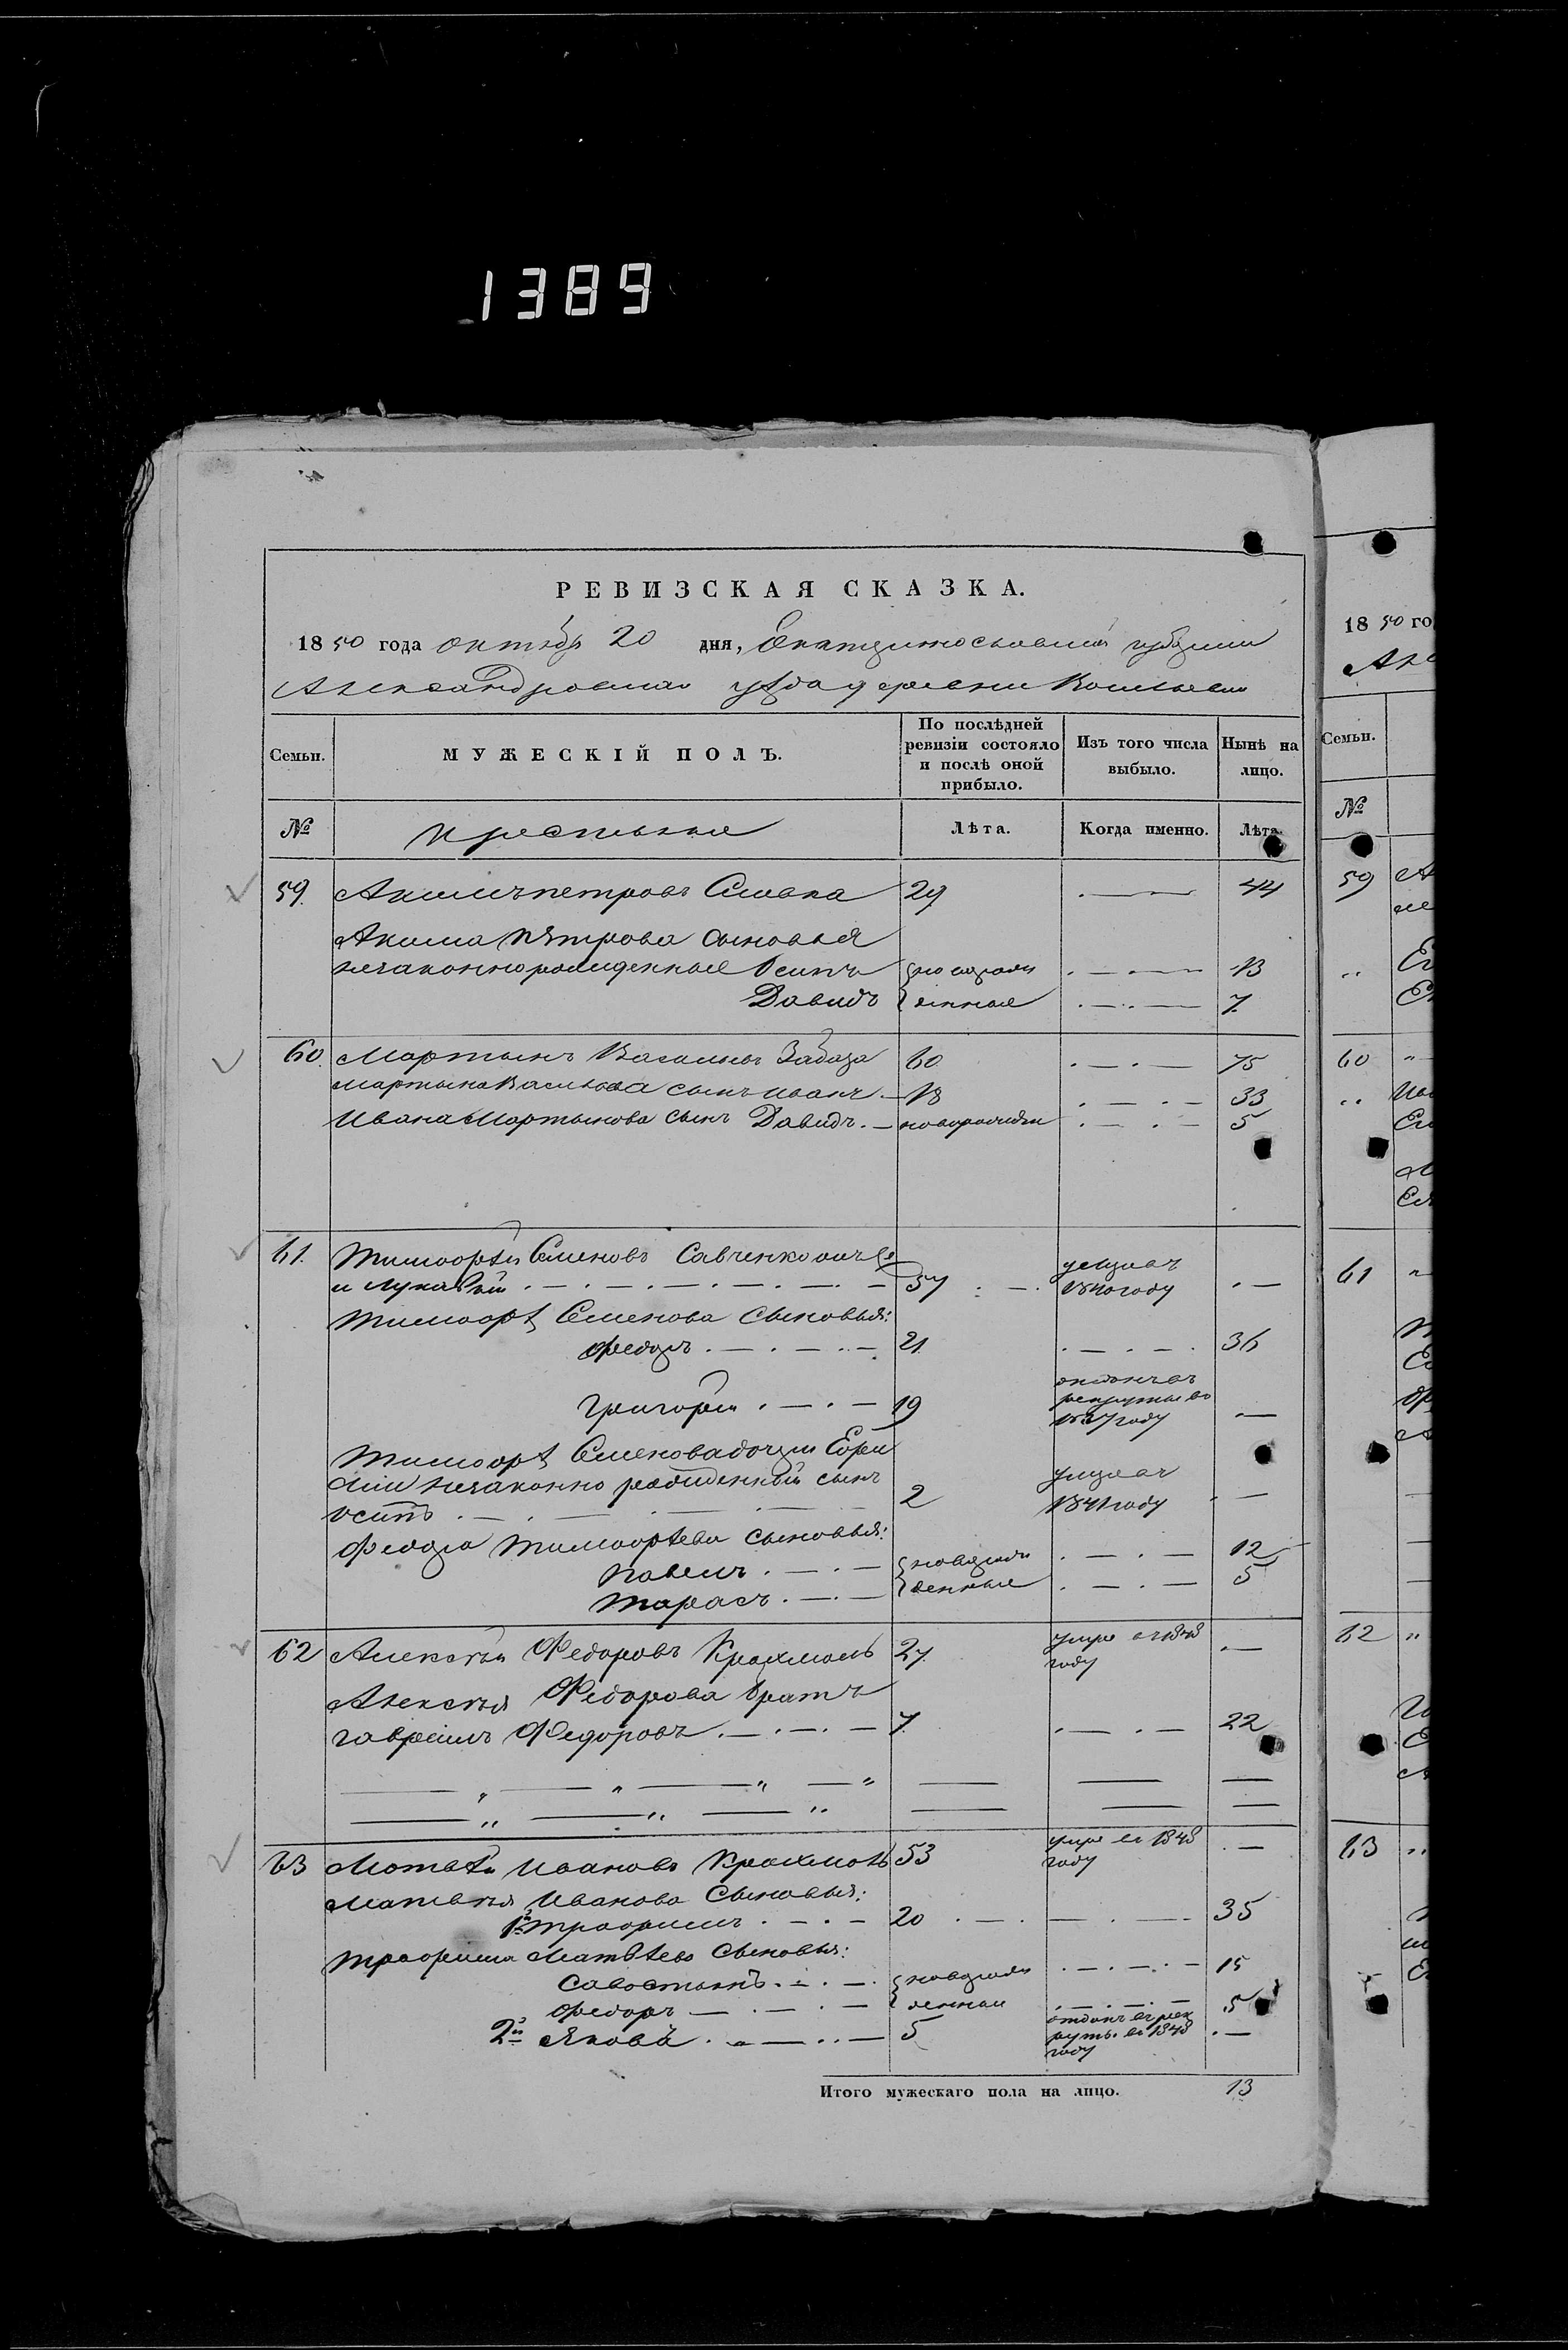 1389
РЕВИЗСКАЯ СКАЗКА.
1850 года октября 20 дня, Екатеринославской губернии
Александровскаго уезда деревни
Семьи.
МУЖЕСКІЙ ПОЛЪ.
По послѣдней ревизіи состояло и послѣ оной прибыло.
Изъ того числа выбыло.
Нынѣ на лицо.
№
крестьяне
Лѣта.
Когда именно.
Лѣта.
59. Акимъ петровъ Сливка 29 44
Акима Петрова сыновья
незаконнорожденные Осипъ новорож 13
Давидъ денные 7.
60. Мартынъ Васильевъ 60 75
Мартына Васильева сынъ иванъ 18 33
Ивана Мартынова сынъ Давидъ. новорожден 5
61. Тимофѣй Семеновъ Савченко онъ же
и Лукавый 57 умеръ въ 1840 году
Тимофѣя Семенова сыновья:
Федоръ 21. 36
Григорій 19 отданъ въ рекруты въ 1837 году
Тимофѣя Семенова дочери
незаконно рожденный сынъ
осипъ 2 умеръ въ 1841 году
Федора Тимофѣева сыновья:
Павелъ новорож 12
Тарасъ денные 5
62 Алексѣй Федоровъ Крохмаль 27. умре въ 1848 году
Алексѣя Федорова братъ
гавріилъ Федоровъ 7. 22
63 Матвѣй Ивановъ Крохмаль 53 умре въ 1848 году
Матвѣя Иванова Сыновья:
1й Трофимъ 20 35
Трофима Матвѣева Сыновья:
Савостьянъ новорож 15
Федоръ денныи 5
2й Яковъ 5 отданъ въ рекруты въ 1848 году
Итого мужескаго пола на лицо. 13
1850 го
Але
Семьи.
№
59
60
61
62
63